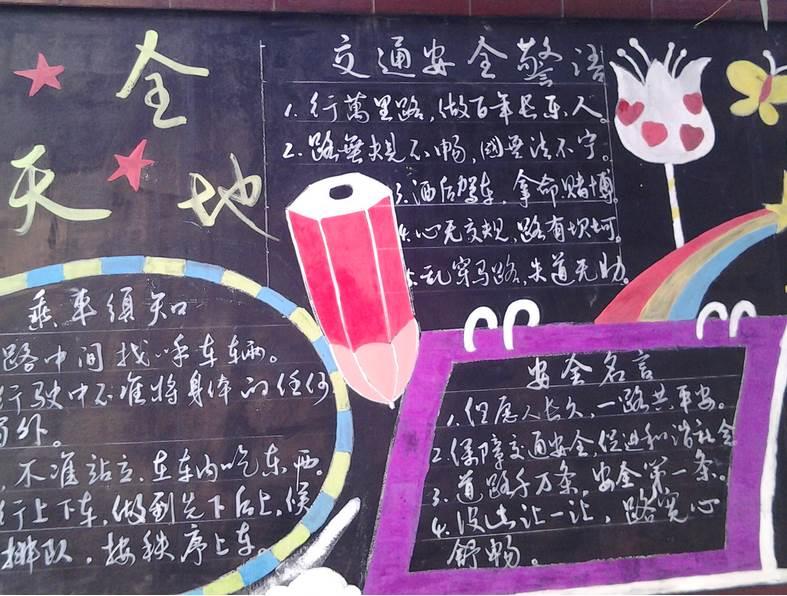 全
天地
交通安全警语
1. 行萬里路，做百年长乐人
2. 路无规不畅，国无法不宁。
3. 酒后驾车，拿命赌博。
4. 心无交规，路有坎坷。
5. 乱穿马路，失道无助。
乘車须知
路中间找呼车辆。
行驶中不准将身体的任何
外。
，不准站立，在车内吃东西。
行上下车，做到先下后上，候
排队，按秩序上车。
安全名言
1. 但愿人长久，一路共平安。
2. 保障交通安全，促进和谐社会
3. 道路千万条，安全第一条。
4. 没让一让，路宽心
舒畅。